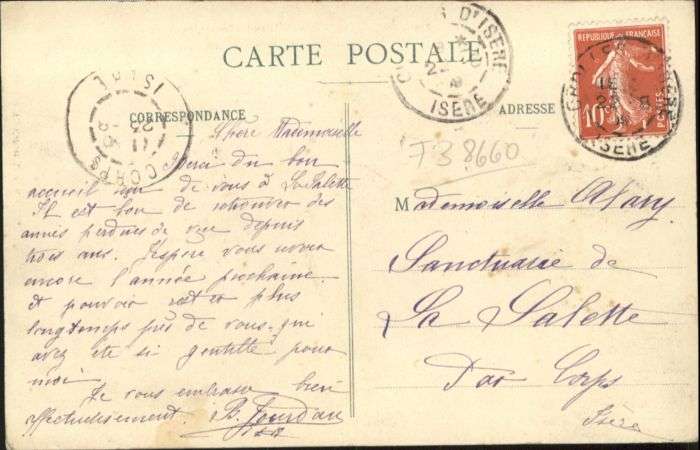 CARTE POSTALE
CORRESPONDANCE
ADRESSE
RÉPUBLIQUE FRANÇAISE
10
POSTES
ISERE
D'ISERE
ISERE
CORPS
ISERE
F3 8660
Chère Mademoiselle
Merci du bon
accueil de vous à La Salette
Il est bon de retrouver des
amies perdues de vue depuis
trois ans. J'espère vous revoir
encore l'année prochaine
et pouvoir rester plus
longtemps près de vous, qui
avez été si gentille pour
moi
Je vous embrasse bien
affectueusement. B. Jourdan
Mademoiselle Alary
Sanctuaire de
La Salette
Par Corps
Isère